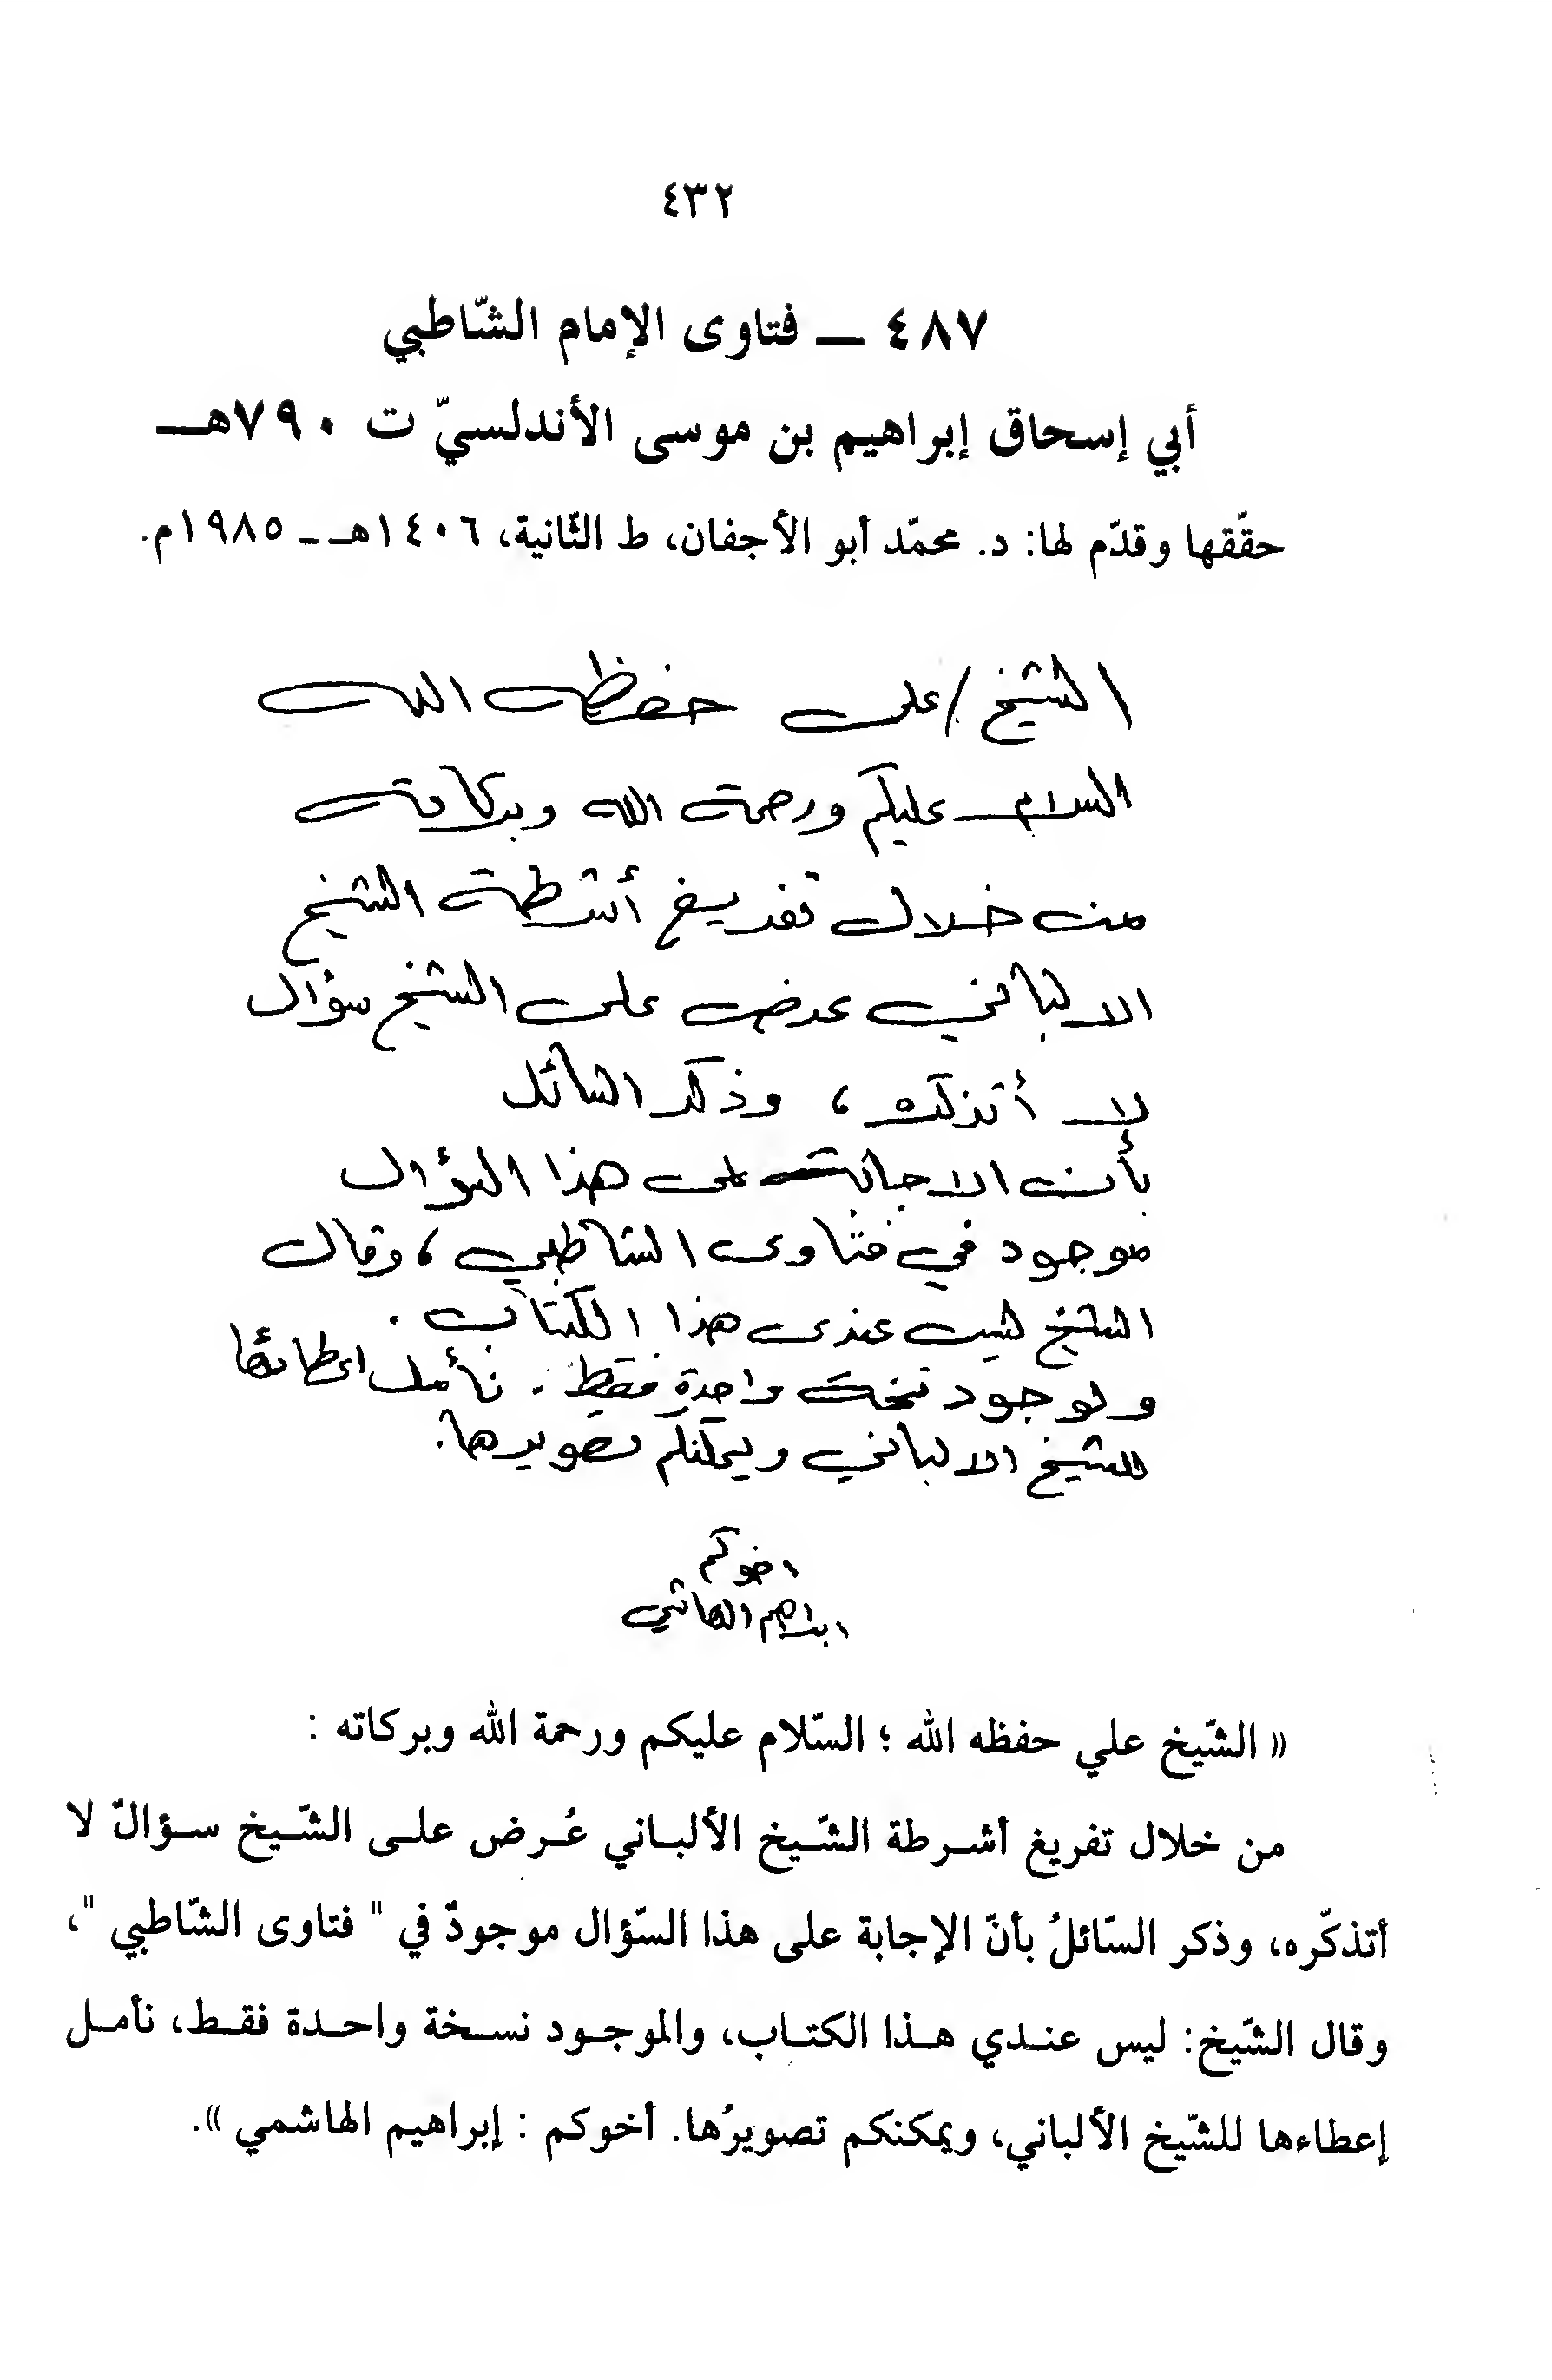 ٤٣٢
٤٨٧ ــ فتاوى الإمام الشّاطبي
أبي إسحاق إبراهيم بن موسى الأندلسيّ ت ٧٩٠هــ
حقّقها وقدّم لها: د. محمّد أبو الأجفان، ط الثّانية، ١٤٠٦هـ ـ ١٩٨٥م.
الشيخ / على حفظه الله
السلام عليكم ورحمة الله وبركاته
من خلال تفريغ أشرطة الشيخ
الالباني عرض على الشيخ سؤال
لا أتذكره ، وذكر السائل
بأن الاجابة على هذا السؤال
موجود في فتاوى الشاطبي ، وقال
الشيخ ليس عندى هذا الكتاب .
ولوجود نسخة واحدة فقط . نأمل اعطائها
للشيخ الالباني ويمكنكم تصويرها .
اخوكم
ابراهيم الهاشمي
« الشّيخ علي حفظه الله ؛ السّلام عليكم ورحمة الله وبركاته :
من خلال تفريغ أشـرطة الشّـيخ الألبـاني عُـرض علـى الشّـيخ سـؤالٌ لا
أتذكّره، وذكر السّائلُ بأنّ الإجابة على هذا السّؤال موجودٌ في " فتاوى الشّاطبي "،
وقال الشّيخ: ليس عنـدي هـذا الكتـاب، والموجـود نسـخة واحـدة فقـط، نأمـل
إعطاءها للشّيخ الألباني، ويمكنكم تصويرُها. أخوكم : إبراهيم الهاشمي ».